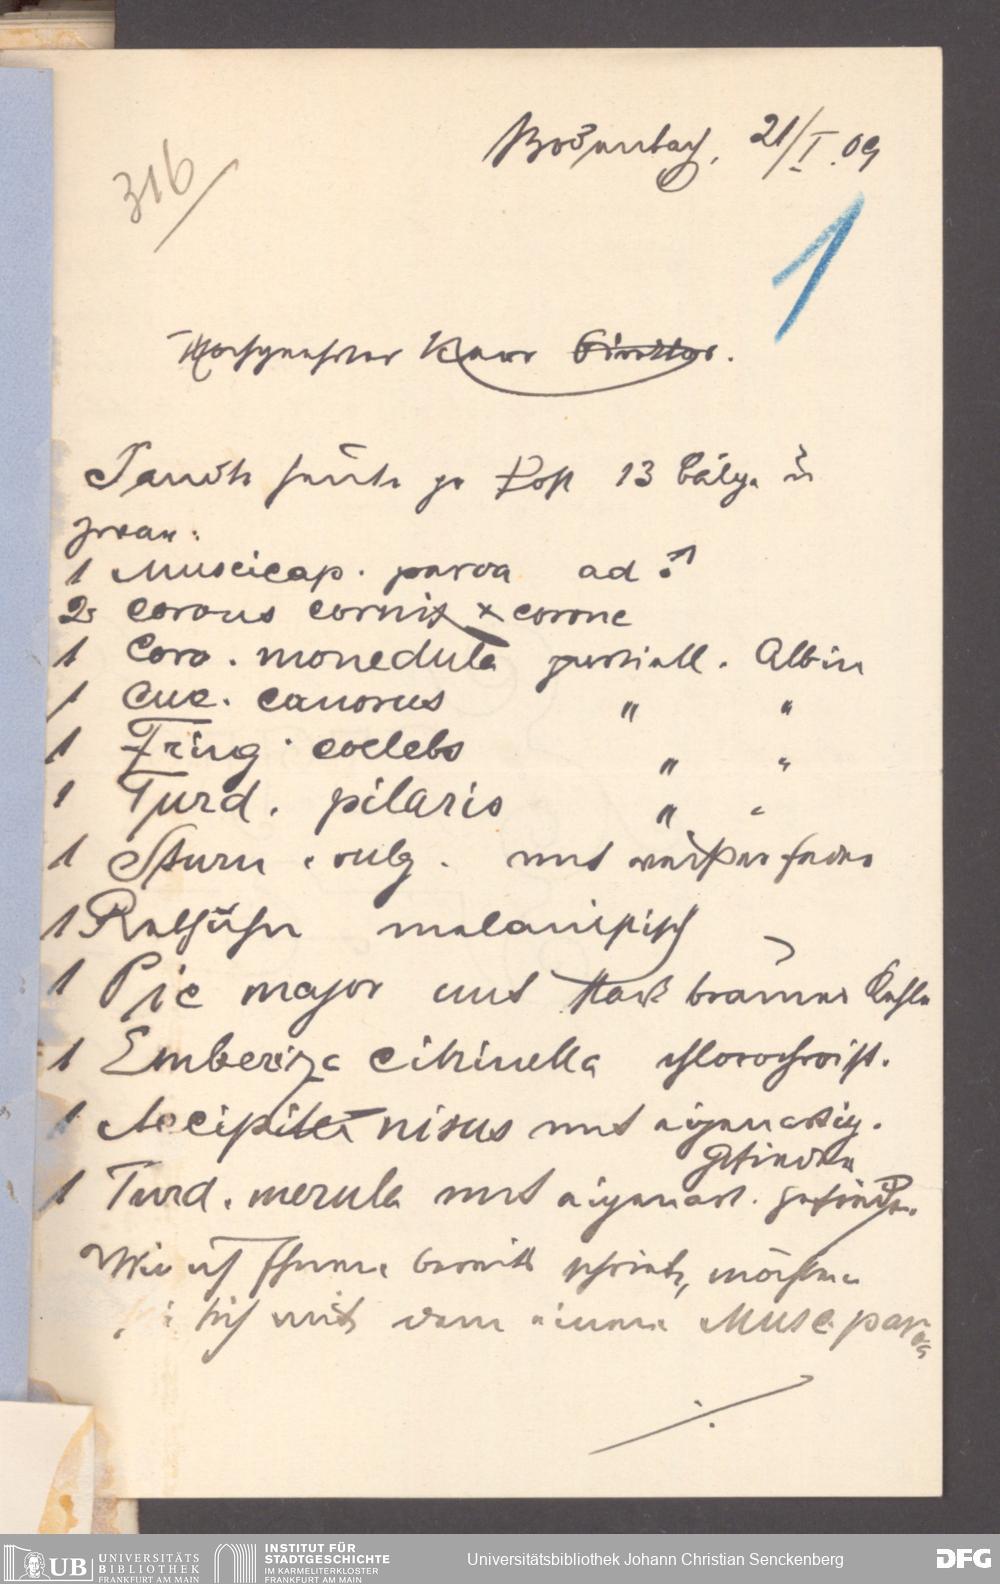 Bodenbach, 21/I. 09
316
1
Hochgeehrter Herr Direktor.
Sandte heute per Post 13 Bälge u.
zwar:
1 Muscicap. parva ad ♂
2 Corvus cornix x corone
1 Corv. monedula partiell. Albin
1 Cuc. canorus " "
1 Fring. coelebs " "
1 Turd. pilaris " "
1 Sturn. vulg. mit weißer Feder
1 Rebhuhn melanistisch
1 Pic major mit stark brauner Kehle
1 Emberiza citrinella chlorochroist.
1 Accipiter nisus mit eigenartig.
Gefieder
1 Turd. merula mit eigenart. Gefieder.
Wie ich Ihnen bereits schrieb, möchten
sich mit dem einen Musc. parva
./.
UB UNIVERSITÄTS
BIBLIOTHEK
FRANKFURT AM MAIN
INSTITUT FÜR
STADTGESCHICHTE
IM KARMELITERKLOSTER
FRANKFURT AM MAIN
Universitätsbibliothek Johann Christian Senckenberg
DFG